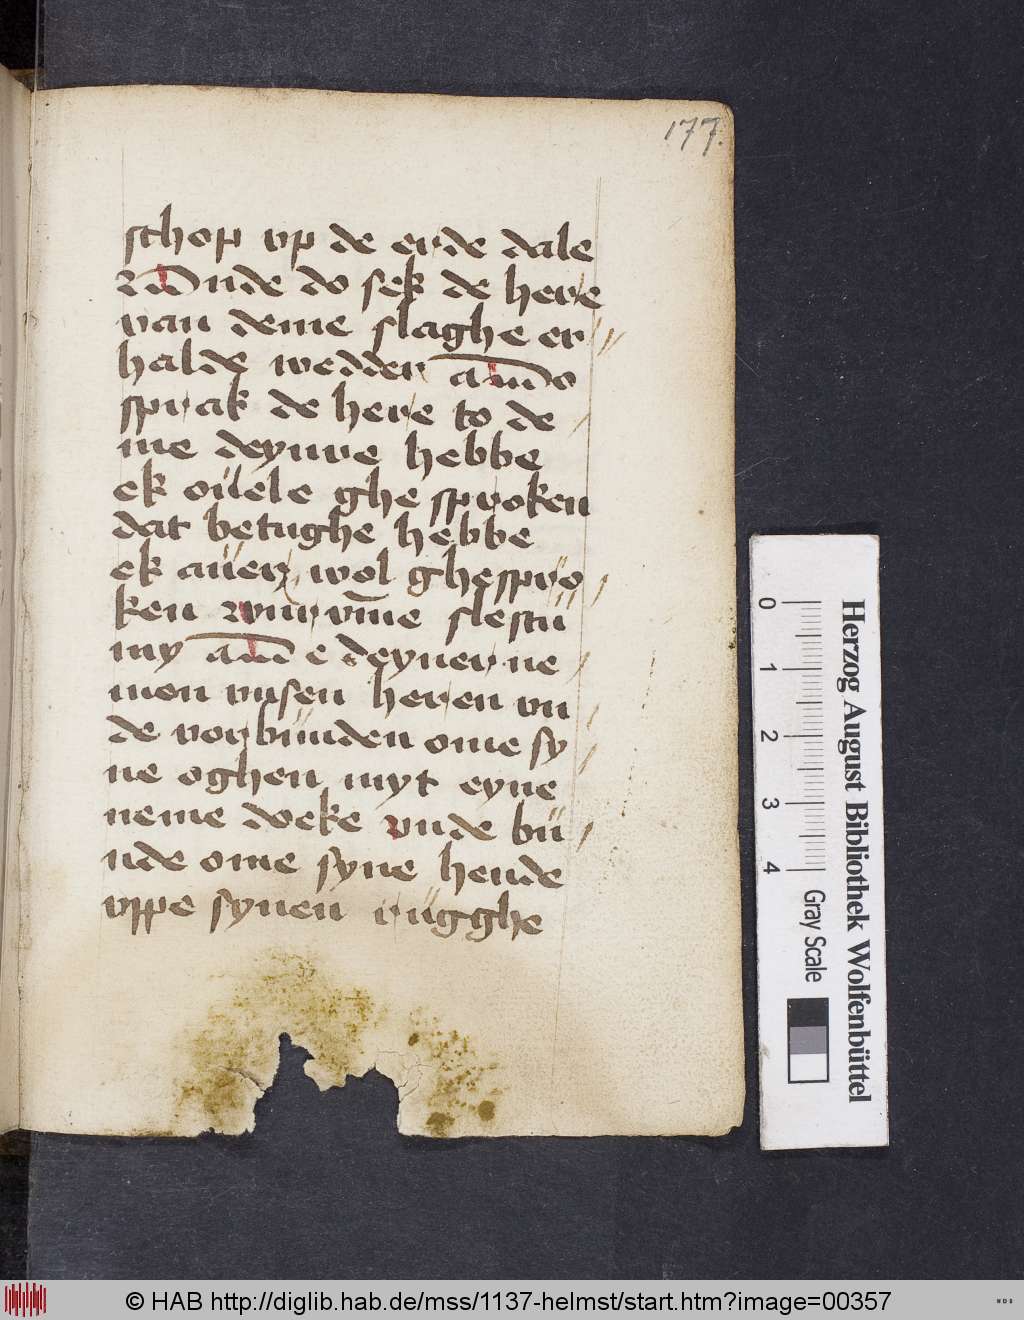 177.
schop vp de erde dale
vnde do sek de here
van deme slaghe er
halde wedder
sprak de here to de
me deynre hebbe
ek oůele ghe sproken
dat betughe hebbe
ek aůer wol ghespro
ken slestů
my de deyner ne
men vnsen heren vn
de vorbůnden ome sy
ne oghen myt eyne
neme doeke vnde bů
nde ome syne hende
vppe synen růgghe
0 1 2 3 4
Gray Scale
Herzog August Bibliothek Wolfenbüttel
© HAB http://diglib.hab.de/mss/1137-helmst/start.htm?image=00357